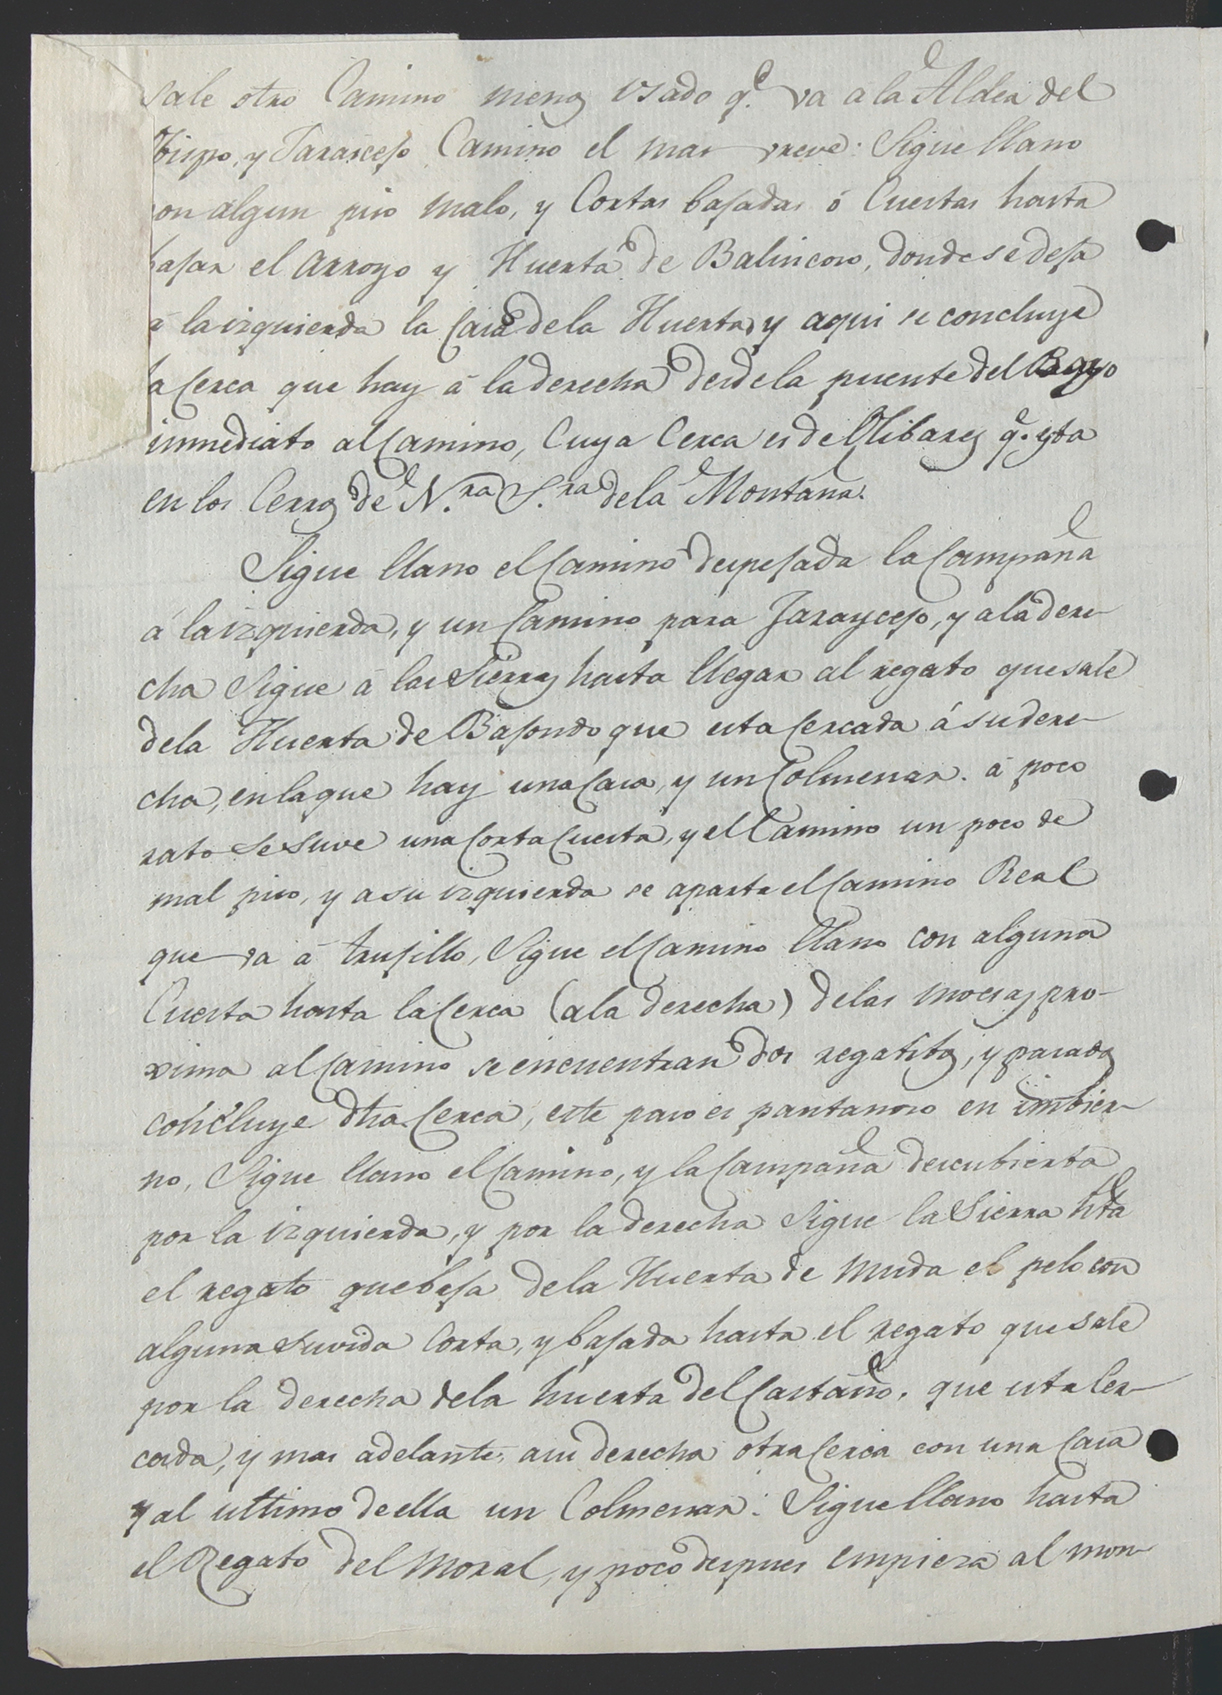 sale otro Camino menos usado q.e va a la Aldea del
Obispo, y Jaraicejo Camino el mas vreve: Sigue llano
con algun piso malo, y Cortas bajadas ó Cuestas hasta
bajar el Arroyo y Huerta de Balincoso, donde se deja
á la izquierda la Casa de la Huerta, y aqui se concluye
la Cerca que hay á la derecha desde la puente del
inmediato al Camino, Cuya Cerca es de Olibares q.e esta
en los Cerros de N.ra S.ra de la Montaña.
Sigue llano el Camino despejada la Campaña
á la izquierda, y un Camino para Jaraycejo, y a la dere-
cha Sigue á las Sierras hasta llegar al regato que sale
de la Huerta de Bajondo que esta Cercada á su dere-
cha, en la que hay una Casa, y un Colmenar. á poco
rato se suve una Corta Cuesta, y el Camino un poco de
mal piso, y a su izquierda se aparta el Camino Real
que va á trujillo, Sigue el Camino llano con alguna
Cuesta hasta la Cerca (a la derecha) de las Mocas pro-
xima al Camino se encuentran dos regatitos, y pasados
concluye dha. Cerca, este paso es pantanoso en imbier-
no, Sigue llano el Camino, y la Campaña descubierta
por la izquierda, y por la derecha Sigue la Sierra hta
el regato que baja de la Huerta de Muda el pelo con
alguna suvida Corta, y bajada hasta el regato que sale
por la derecha de la huerta del Castaño, que esta Cer-
cada, y mas adelante, a su derecha otra Cerca con una Casa
y al ultimo de ella un Colmenar: Sigue llano hasta
el Regato del Moral, y poco despues empieza al mon-